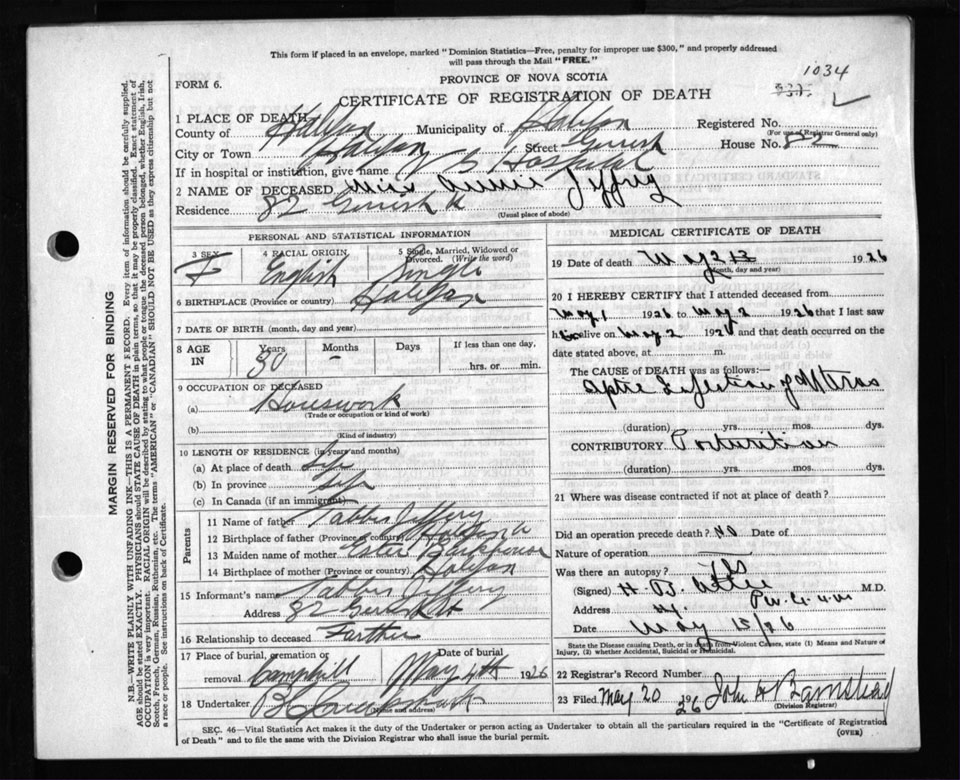 This form if placed in an envelope, marked "Dominion Statistics—Free, penalty for improper use $300," and properly addressed
will pass through the Mail "FREE."
FORM 6.
PROVINCE OF NOVA SCOTIA
1034
CERTIFICATE OF REGISTRATION OF DEATH
1 PLACE OF DEATH
County of Halifax Municipality of Halifax Registered No.
(For use of Registrar General only)
City or Town Halifax Street Gerrish House No. 82
If in hospital or institution, give name V G Hospital
2 NAME OF DECEASED Miss Annie Jeffrey
Residence 82 Gerrish St
(Usual place of abode)
PERSONAL AND STATISTICAL INFORMATION
3 SEX F
4 RACIAL ORIGIN English
5 Single, Married, Widowed or Divorced. (Write the word) Single
6 BIRTHPLACE (Province or country) Halifax
7 DATE OF BIRTH (month, day and year)
8 AGE IN Years 30 Months – Days If less than one day, hrs. or min.
9 OCCUPATION OF DECEASED
(a) Housework
(Trade or occupation or kind of work)
(b)
(Kind of industry)
10 LENGTH OF RESIDENCE (in years and months)
(a) At place of death Life
(b) In province Life
(c) In Canada (if an immigrant)
Parents
11 Name of father Jeffery
12 Birthplace of father (Province or country)
13 Maiden name of mother Ester
14 Birthplace of mother (Province or country) Halifax
15 Informant's name Jeffery
Address 82 Gerrish St
16 Relationship to deceased Farther
17 Place of burial, cremation or removal Camphill Date of burial May 4th 1926
18 Undertaker
MEDICAL CERTIFICATE OF DEATH
19 Date of death May 2 1926
(Month, day and year)
20 I HEREBY CERTIFY that I attended deceased from
May 1 1926 to May 2 1926 that I last saw
h alive on May 2 1926 and that death occurred on the
date stated above, at m.
The CAUSE OF DEATH was as follows:—
Infection of Uterus
(duration) yrs. mos. dys.
CONTRIBUTORY Parturition
(duration) yrs. mos. dys.
21 Where was disease contracted if not at place of death?
Did an operation precede death? No Date of
Nature of operation
Was there an autopsy? Yes
(Signed) H. B. Atlee M.D.
Address
Date May 15/26
State the Disease causing Death, or in death from Violent Causes, state (1) Means and Nature of
Injury, (2) whether Accidental, Suicidal or Homicidal.
22 Registrar's Record Number
23 Filed May 20 1926 John H Barnstead
(Division Registrar)
SEC. 46—Vital Statistics Act makes it the duty of the Undertaker or person acting as Undertaker to obtain all the particulars required in the "Certificate of Registration
of Death" and to file the same with the Division Registrar who shall issue the burial permit.
(OVER)
MARGIN RESERVED FOR BINDING
N.B.—WRITE PLAINLY WITH UNFADING INK—THIS IS A PERMANENT RECORD. Every item of information should be carefully supplied.
AGE should be stated EXACTLY. PHYSICIANS should STATE CAUSE OF DEATH in plain terms, so that it may be properly classified. Exact statement of
OCCUPATION is very important. RACIAL ORIGIN will be described by stating to what people or tongue the deceased person belonged, whether English, Irish,
Scotch, French, German, Russian, Ruthenian, etc. The terms "AMERICAN" or "CANADIAN" SHOULD NOT BE USED as they express citizenship but not
a race or people. See instructions on back of Certificate.